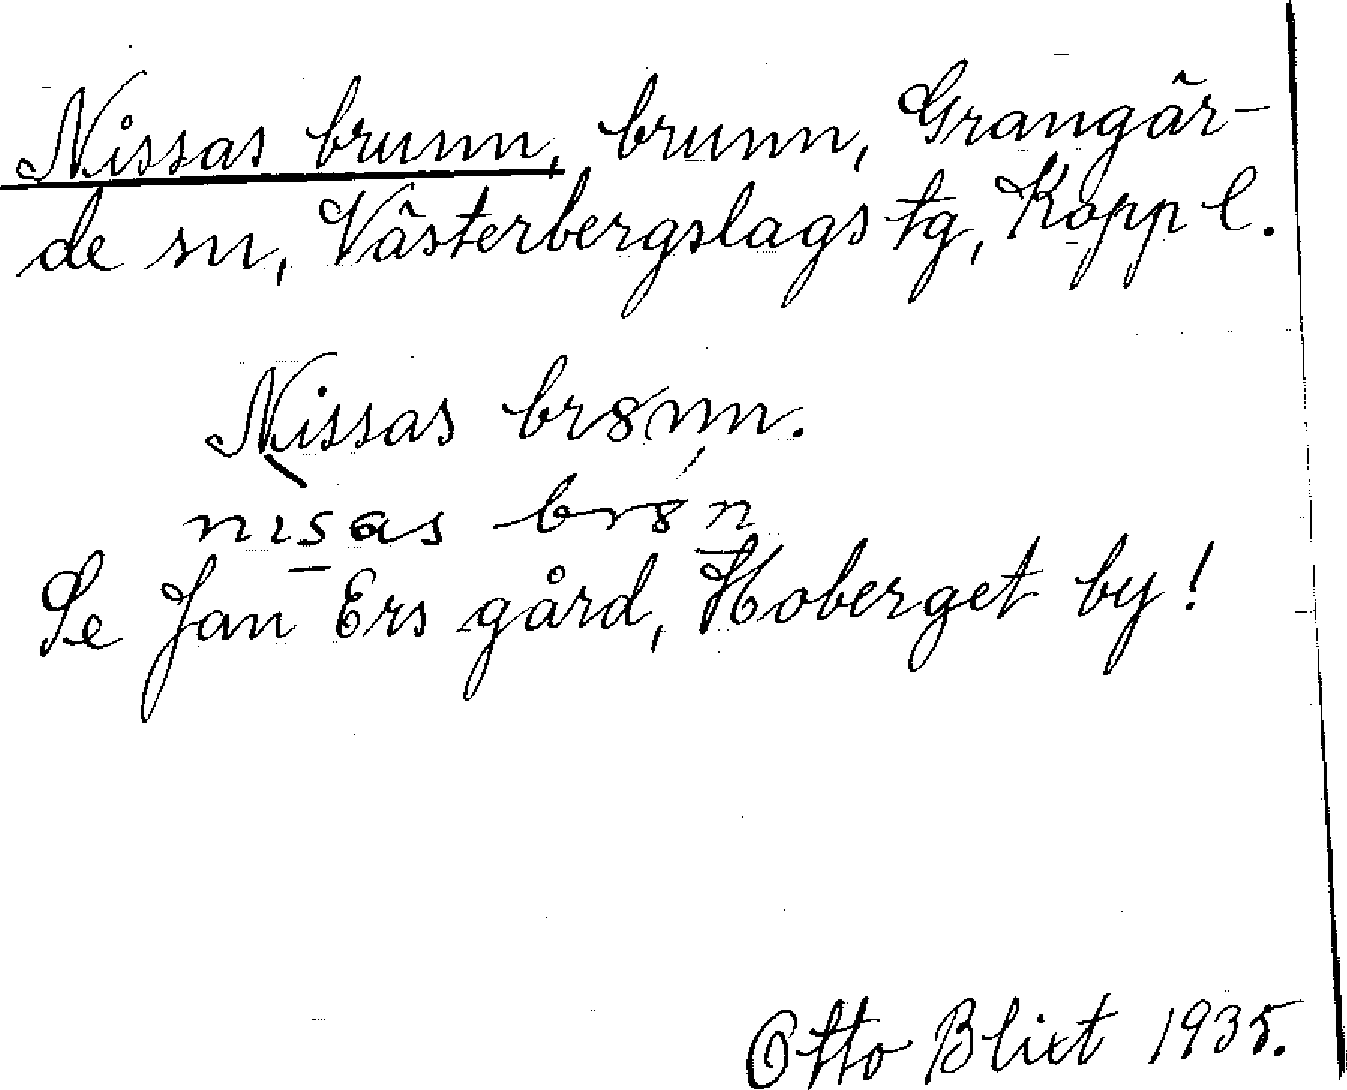 Nissas brunn, brunn, Grangär-
de sn, Västerbergslags tg, Kopp l.
Nissas br8nn.
nisas br8n
Se Jan Ers gård, Hoberget by!
Otto Blixt 1935.